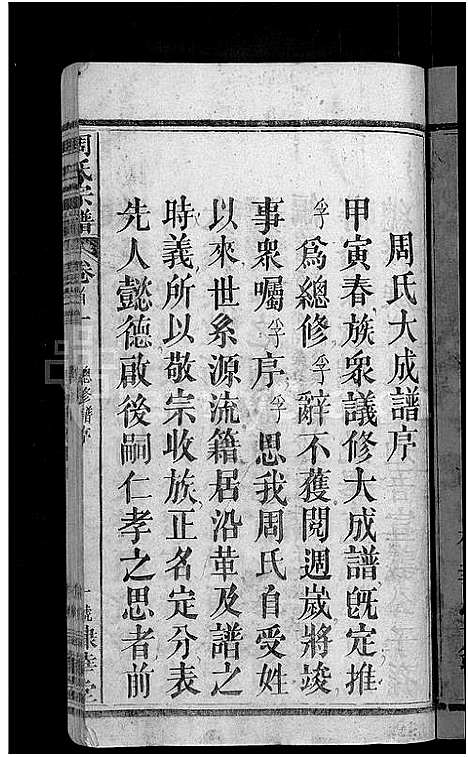 周氏大成譜序
甲寅春族眾議修大成譜既定推
孚爲總修孚辭不獲閱週嵗將竣
事眾囑孚序孚思我周氏自受姓
以來世系源流籍居沿革及譜之
時義所以敬宗收族正名定分表
先人懿德啟後嗣仁孝之思者前
周氏宗譜
卷首一
總修譜序